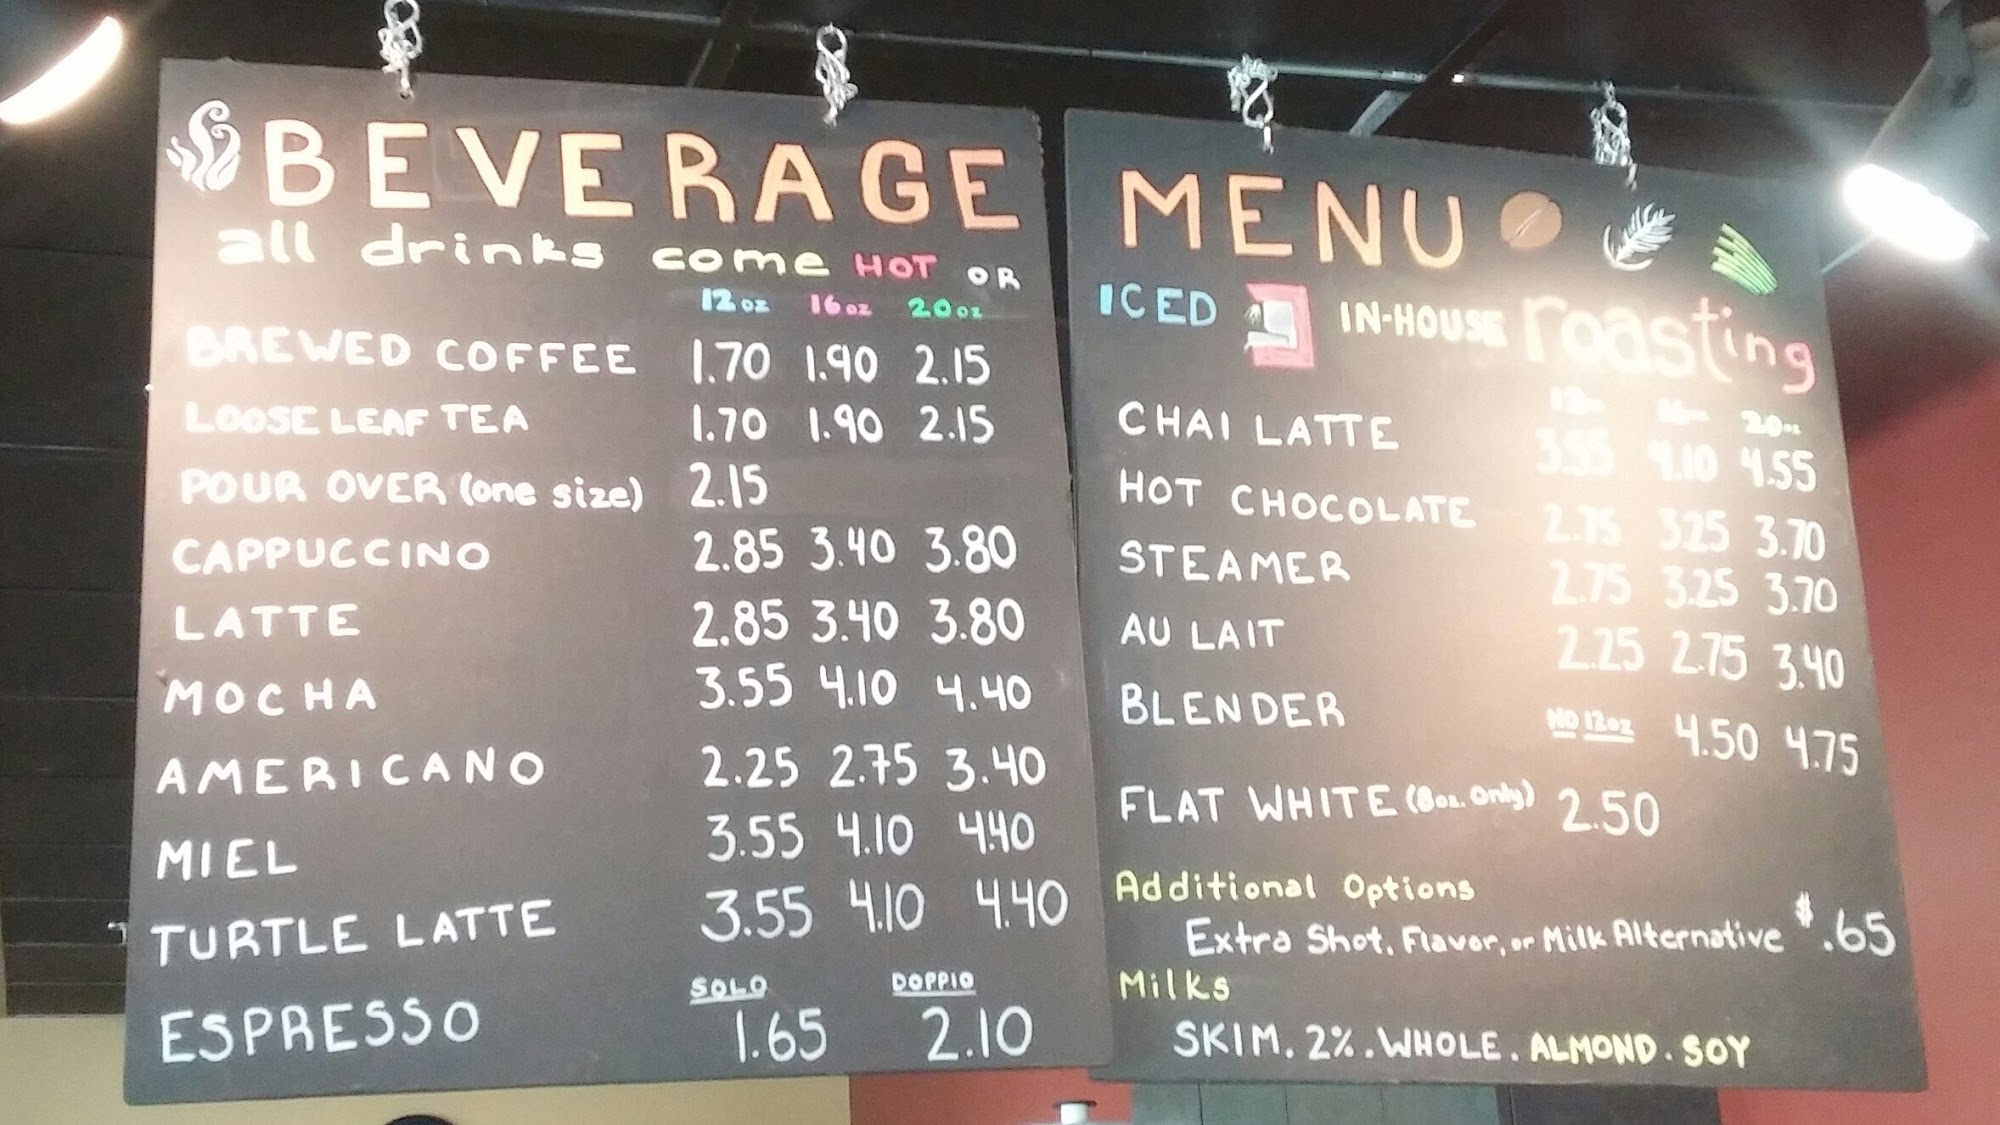 BEVERAGE
all drinks come HOT OR
12oz 16oz 20oz
BREWED COFFEE 1.70 1.90 2.15
LOOSE LEAF TEA 1.70 1.90 2.15
POUR OVER (one size) 2.15
CAPPUCCINO 2.85 3.40 3.80
LATTE 2.85 3.40 3.80
MOCHA 3.55 4.10 4.40
AMERICANO 2.25 2.75 3.40
MIEL 3.55 4.10 4.40
TURTLE LATTE 3.55 4.10 4.40
SOLO DOPPIO
ESPRESSO 1.65 2.10
MENU
ICED IN-HOUSE roasting
12oz 16oz 20oz
CHAI LATTE 3.55 4.10 4.55
HOT CHOCOLATE 2.75 3.25 3.70
STEAMER 2.75 3.25 3.70
AU LAIT 2.25 2.75 3.40
BLENDER NO 12oz 4.50 4.75
FLAT WHITE (8oz. only) 2.50
Additional Options
Extra Shot, Flavor, or Milk Alternative $.65
Milks
SKIM. 2%. WHOLE. ALMOND. SOY